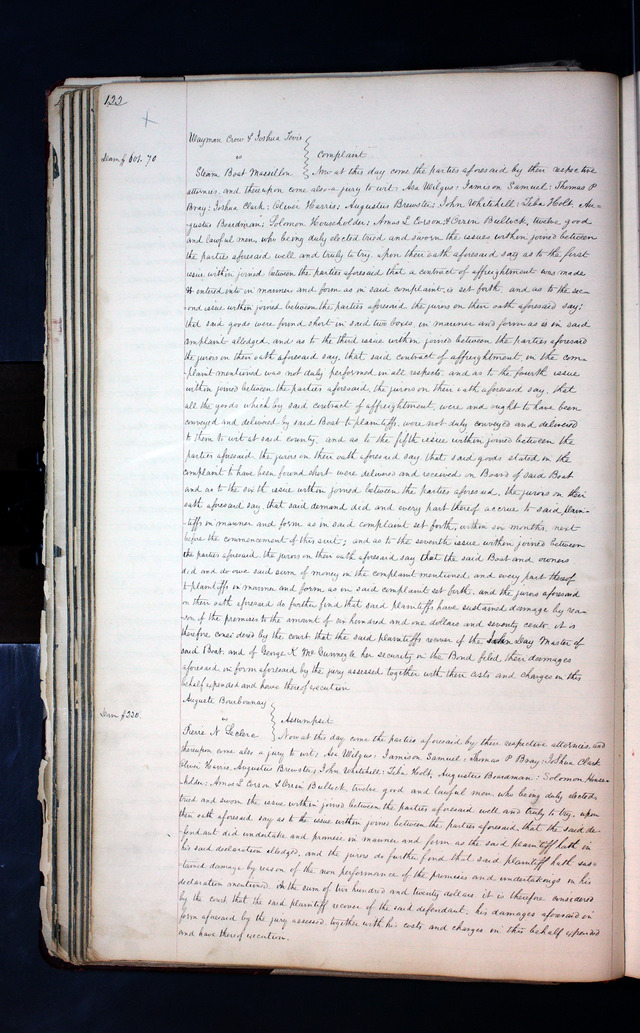 122
Wayman Crow & Joshua Tevis
Dam $601.70
vs
Complaint
Steam Boat Massillon
Now at this day come the parties aforesaid by their respective
attornies, and thereupon come also a jury to wit: Asa Wilgus; Jamison Samuel; Thomas P
Bray; Joshua Clark; Oliver Harris; Augustus Brewster; John Whitehill; Holt, Au-
gustus Boardman; Solomon Householder; Amos L Corson & Orein Bullock, twelve good
and lawful men, who being duly elected tried and sworn the issues within joined between
the parties aforesaid well and truly to try, upon their oath aforesaid say as to the first
issue within joined between the parties aforesaid that a contract of affreightment was made
& entered into in manner and form as in said complaint is set forth, and as to the sec-
ond issue within joined between the parties aforesaid the jurors on their oath aforesaid say;
that said goods were found short in said two boxes, in manner and form as is in said
complaint alledged, and as to the third issue within joined between the parties aforesaid
the jurors on their oath aforesaid say, that said contract of affreightment, in the com-
plaint mentioned was not duly performed in all respects, and as to the fourth issue
within joined between the parties aforesaid, the jurors on their oath aforesaid say, that
all the goods which by said contract of affreightment, were and ought to have been
conveyed and delivered by said Boat to plaintiffs, were not duly conveyed and delivered
to them to wit at said county, and as to the fifth issue within joined between the
parties aforesaid the jurors on their oath aforesaid say that said goods stated in the
complaint to have been found short were delivered and received on Board of said Boat
and as to the sixth issue within joined between the parties aforesaid, the jurors on their
oath aforesaid say, that said demand did and every part thereof accrue to said plain-
tiffs in manner and form as in said complaint set forth, within six months, next
before the commencement of this suit; and as to the seventh issue within joined between
the parties aforesaid the jurors on their oath aforesaid say that the said Boat and owners
did and do owe said sum of money in the complaint mentioned and every part thereof
to plaintiffs in manner and form as in said complaint set forth, and the jurors aforesaid
on their oath aforesaid do further find that said plaintiffs have sustained damage by rea-
son of the premises to the amount of six hundred and one dollars and seventy cents, it is
therefore considered by the court that the said plaintiffs recover of the John Day Master of
said Boat, and of George K McGunnegle her security in the Bond filed, their damages
aforesaid in form aforesaid by the jury assessed together with their costs and charges in this
behalf expended and have thereof execution
Auguste Bourbounay
Dam $220.
vs
Assumpsit
Pierre N Leclere
Now at this day come the parties aforesaid by their respective attornies, and
thereupon come also a jury to wit; Asa Wilgus; Jamison Samuel; Thomas P Bray; Joshua Clark
Oliver Harris, Augustus Brewster; John Whitehill; Holt, Augustus Boardman; Solomon House-
holder; Amos L Corson & Orein Bullock, twelve good and lawful men, who being duly elected
tried and sworn the issue within joined between the parties aforesaid well and truly to try, upon
their oath aforesaid say as to the issue within joined between the parties aforesaid, that the said de-
fendant did undertake and promise in manner and form as the said plaintiff hath in
his said declaration alledged, and the jurors do further find that said plaintiff hath sus-
tained damage by reason of the non performance of the promises and undertakings in his
declaration mentioned in the sum of two hundred and twenty dollars. it is therefore considered
by the court that the said plaintiff recover of the said defendant, his damages aforesaid in
form aforesaid by the jury assessed, together with his costs and charges in this behalf expended
and have thereof execution.